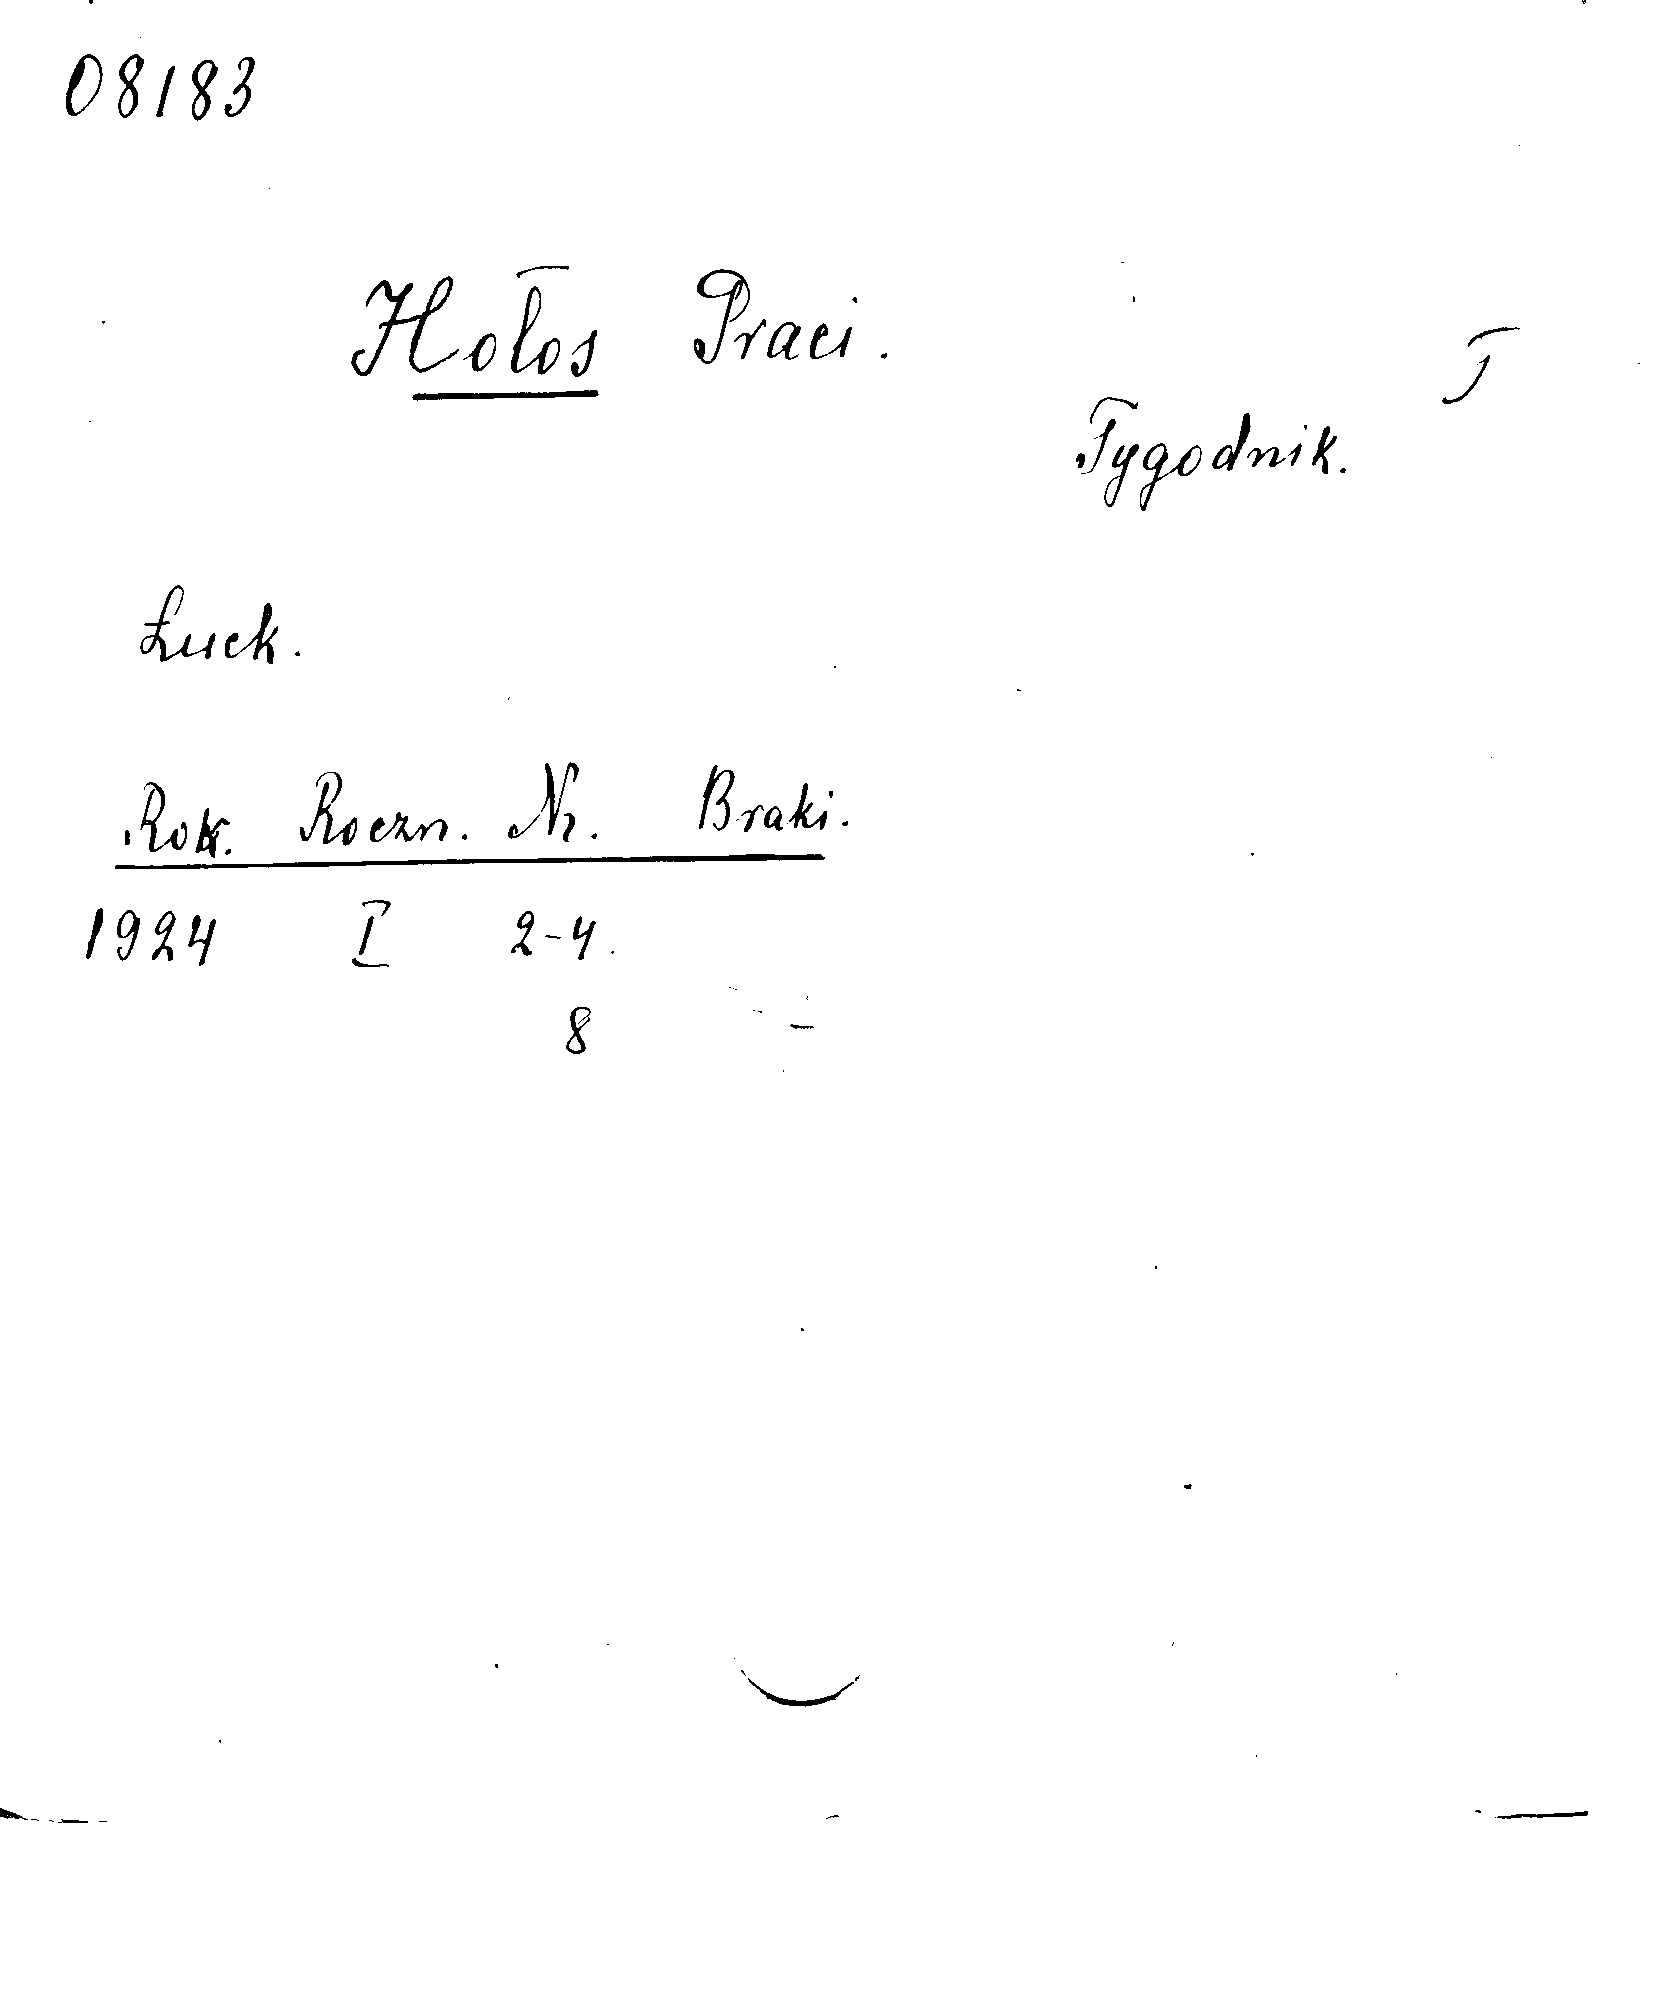 08183
Hołos Praci.
T
Tygodnik.
Łuck.
Rok. Roczn. Nr. Braki.
1924 I 2-4.
8 -